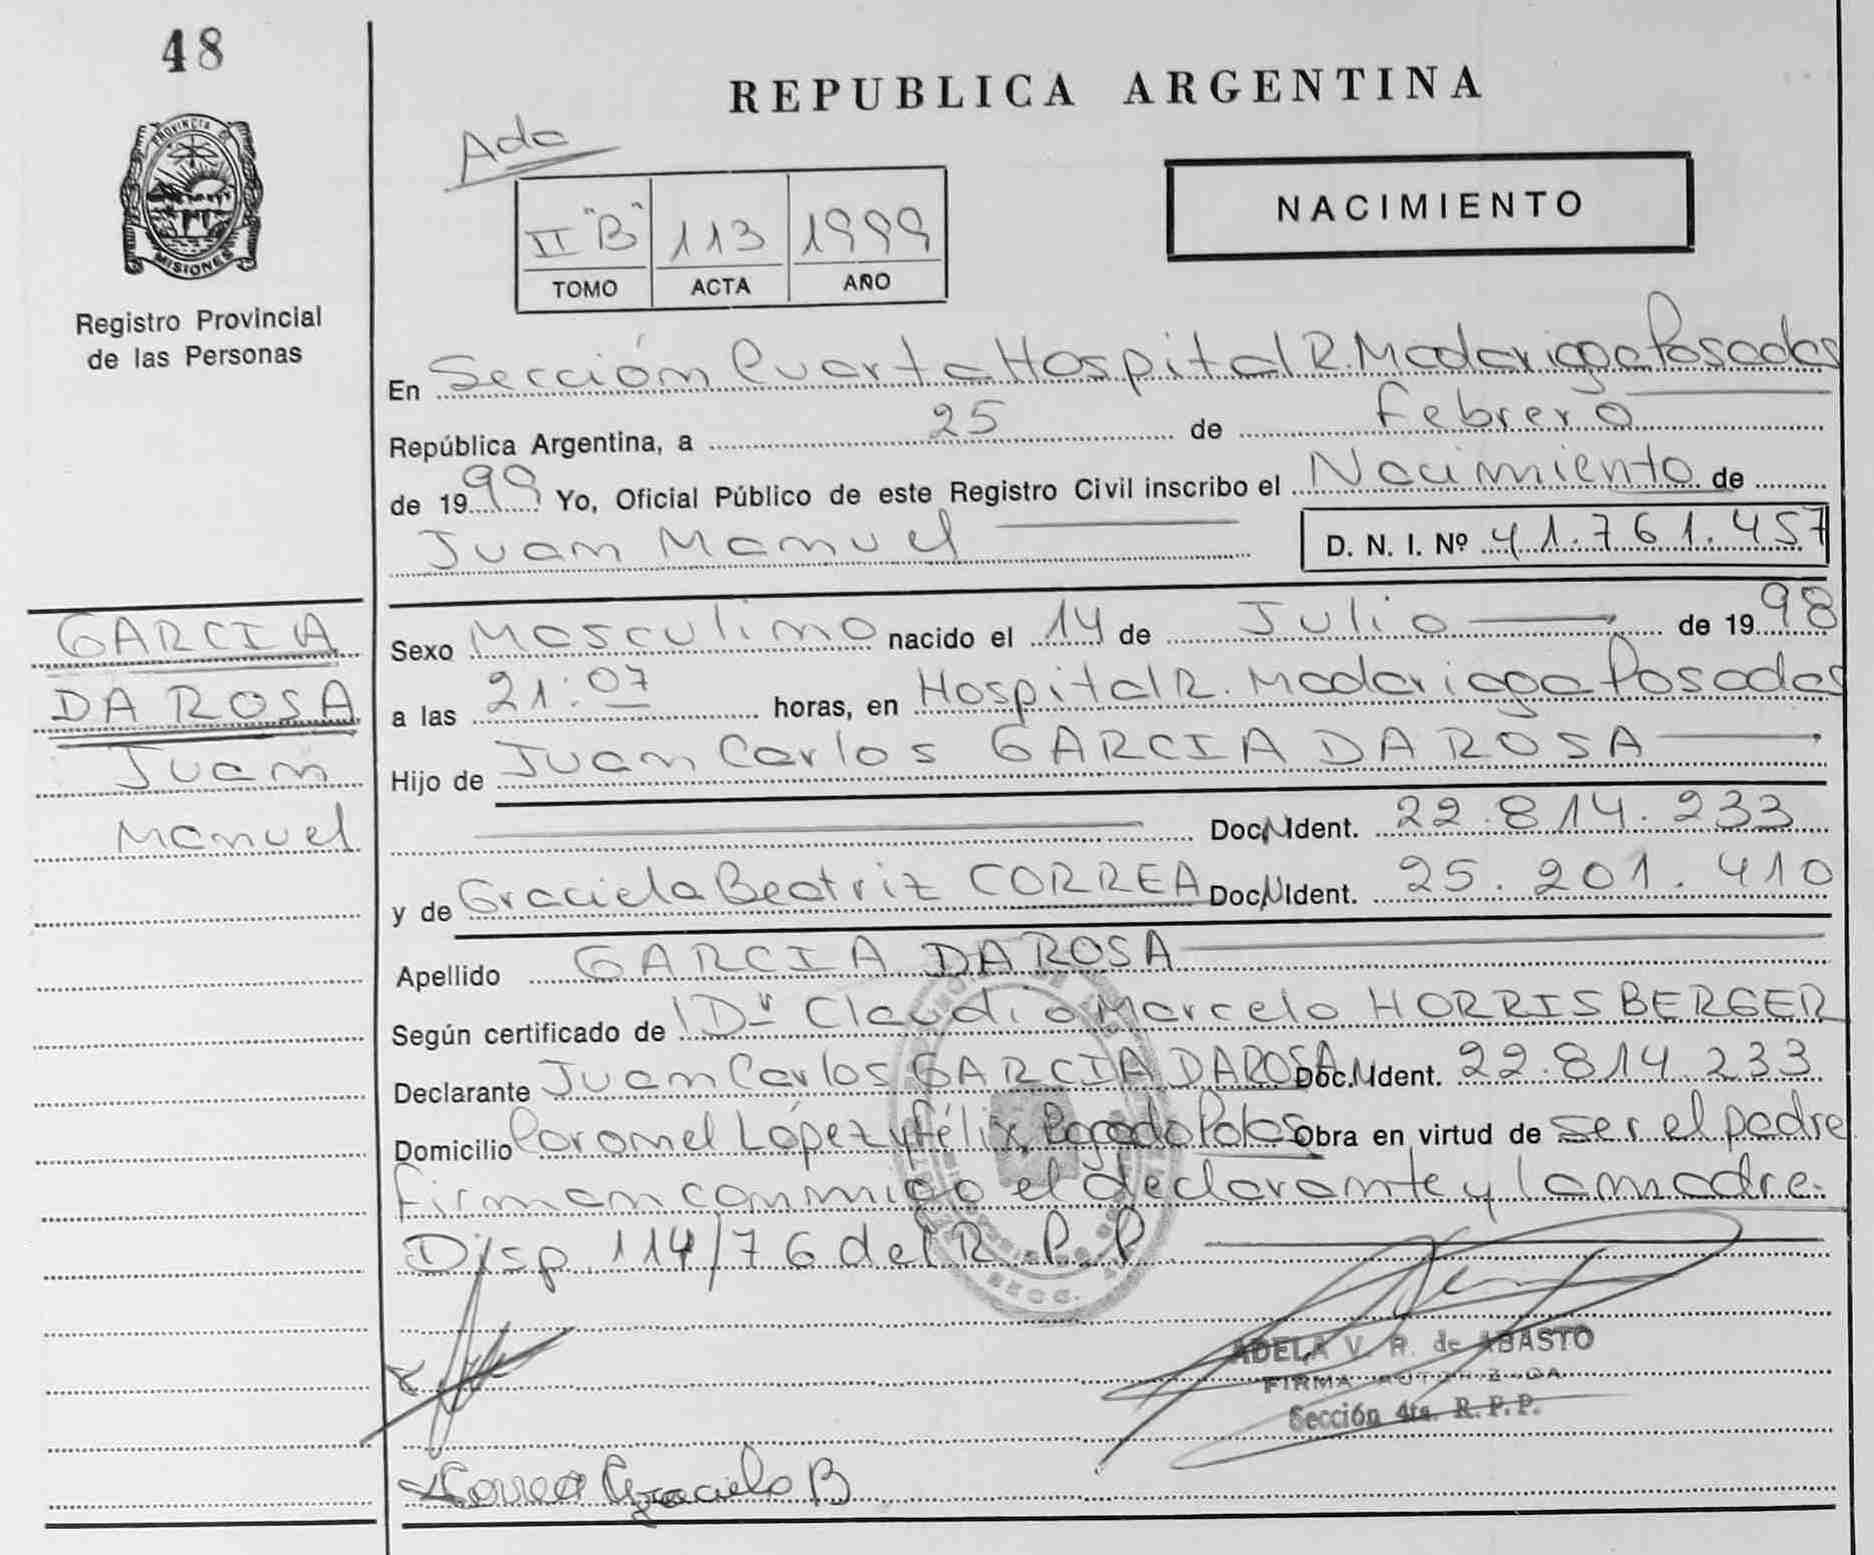 48
REPUBLICA ARGENTINA
PROVINCIA D
MISIONES
Registro Provincial
de las Personas
Ada
NACIMIENTO
II "B" 113 1999
TOMO ACTA AÑO
En Sección Cuarta Hospital R. Madariaga Posadas
República Argentina, a 25 de Febrero
de 1999 Yo, Oficial Público de este Registro Civil inscribo el Nacimiento de
Juan Manuel D. N. I. Nº 41.761.457
GARCIA
DA ROSA
Juan
Manuel
Sexo Masculino nacido el 14 de Julio de 1998
a las 21:07 horas, en Hospital R. Madariaga Posadas
Hijo de Juan Carlos GARCIA DA ROSA
Doc. N Ident. 22.814.233
y de Graciela Beatriz CORREA Doc. N Ident. 25.201.410
Apellido GARCIA DA ROSA
Según certificado de Dr Claudio Marcelo HORRISBERGER
Declarante Juan Carlos GARCIA DA ROSA Doc. N Ident. 22.814.233
Domicilio Coronel López y Félix Pdas Obra en virtud de ser el padre
firman conmigo el declarante y la madre.
Disp. 114/76 del R. P. P
ADELA V. R. de ABASTO
FIRMA AUTORIZADA
Sección 4ta. R. P. P.
Correa Graciela B